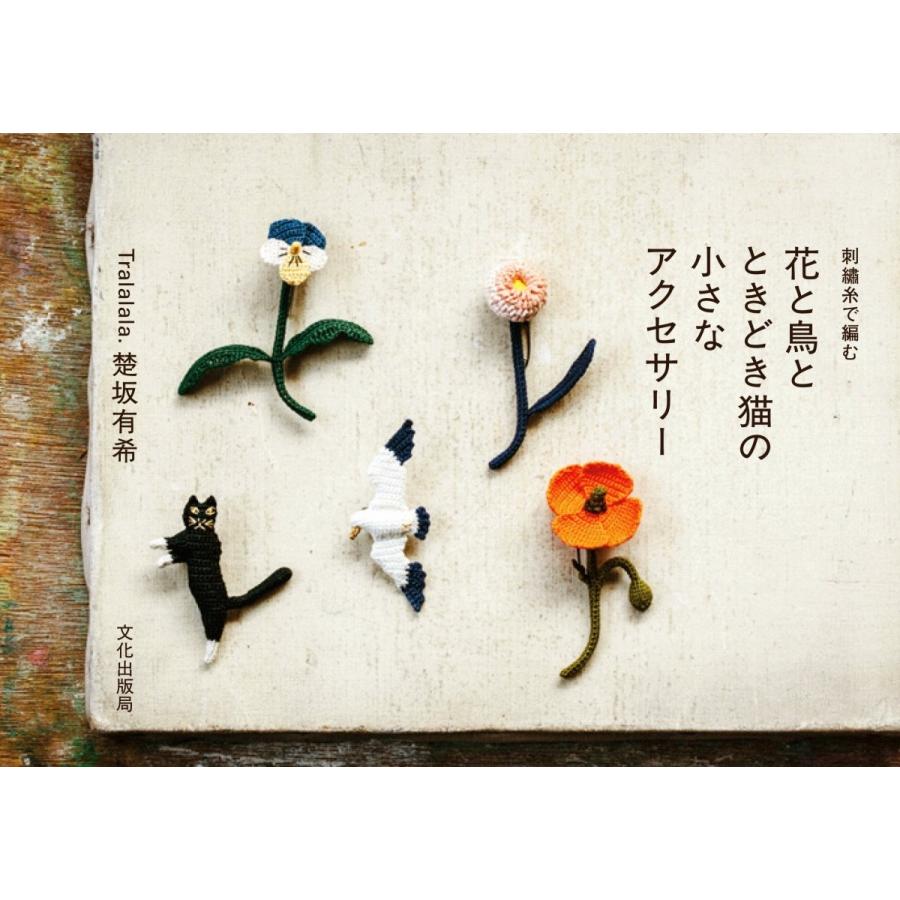 刺繡糸で編む
花と鳥と
ときどき猫の
小さな
アクセサリー
Tralalala. 楚坂有希
文化出版局